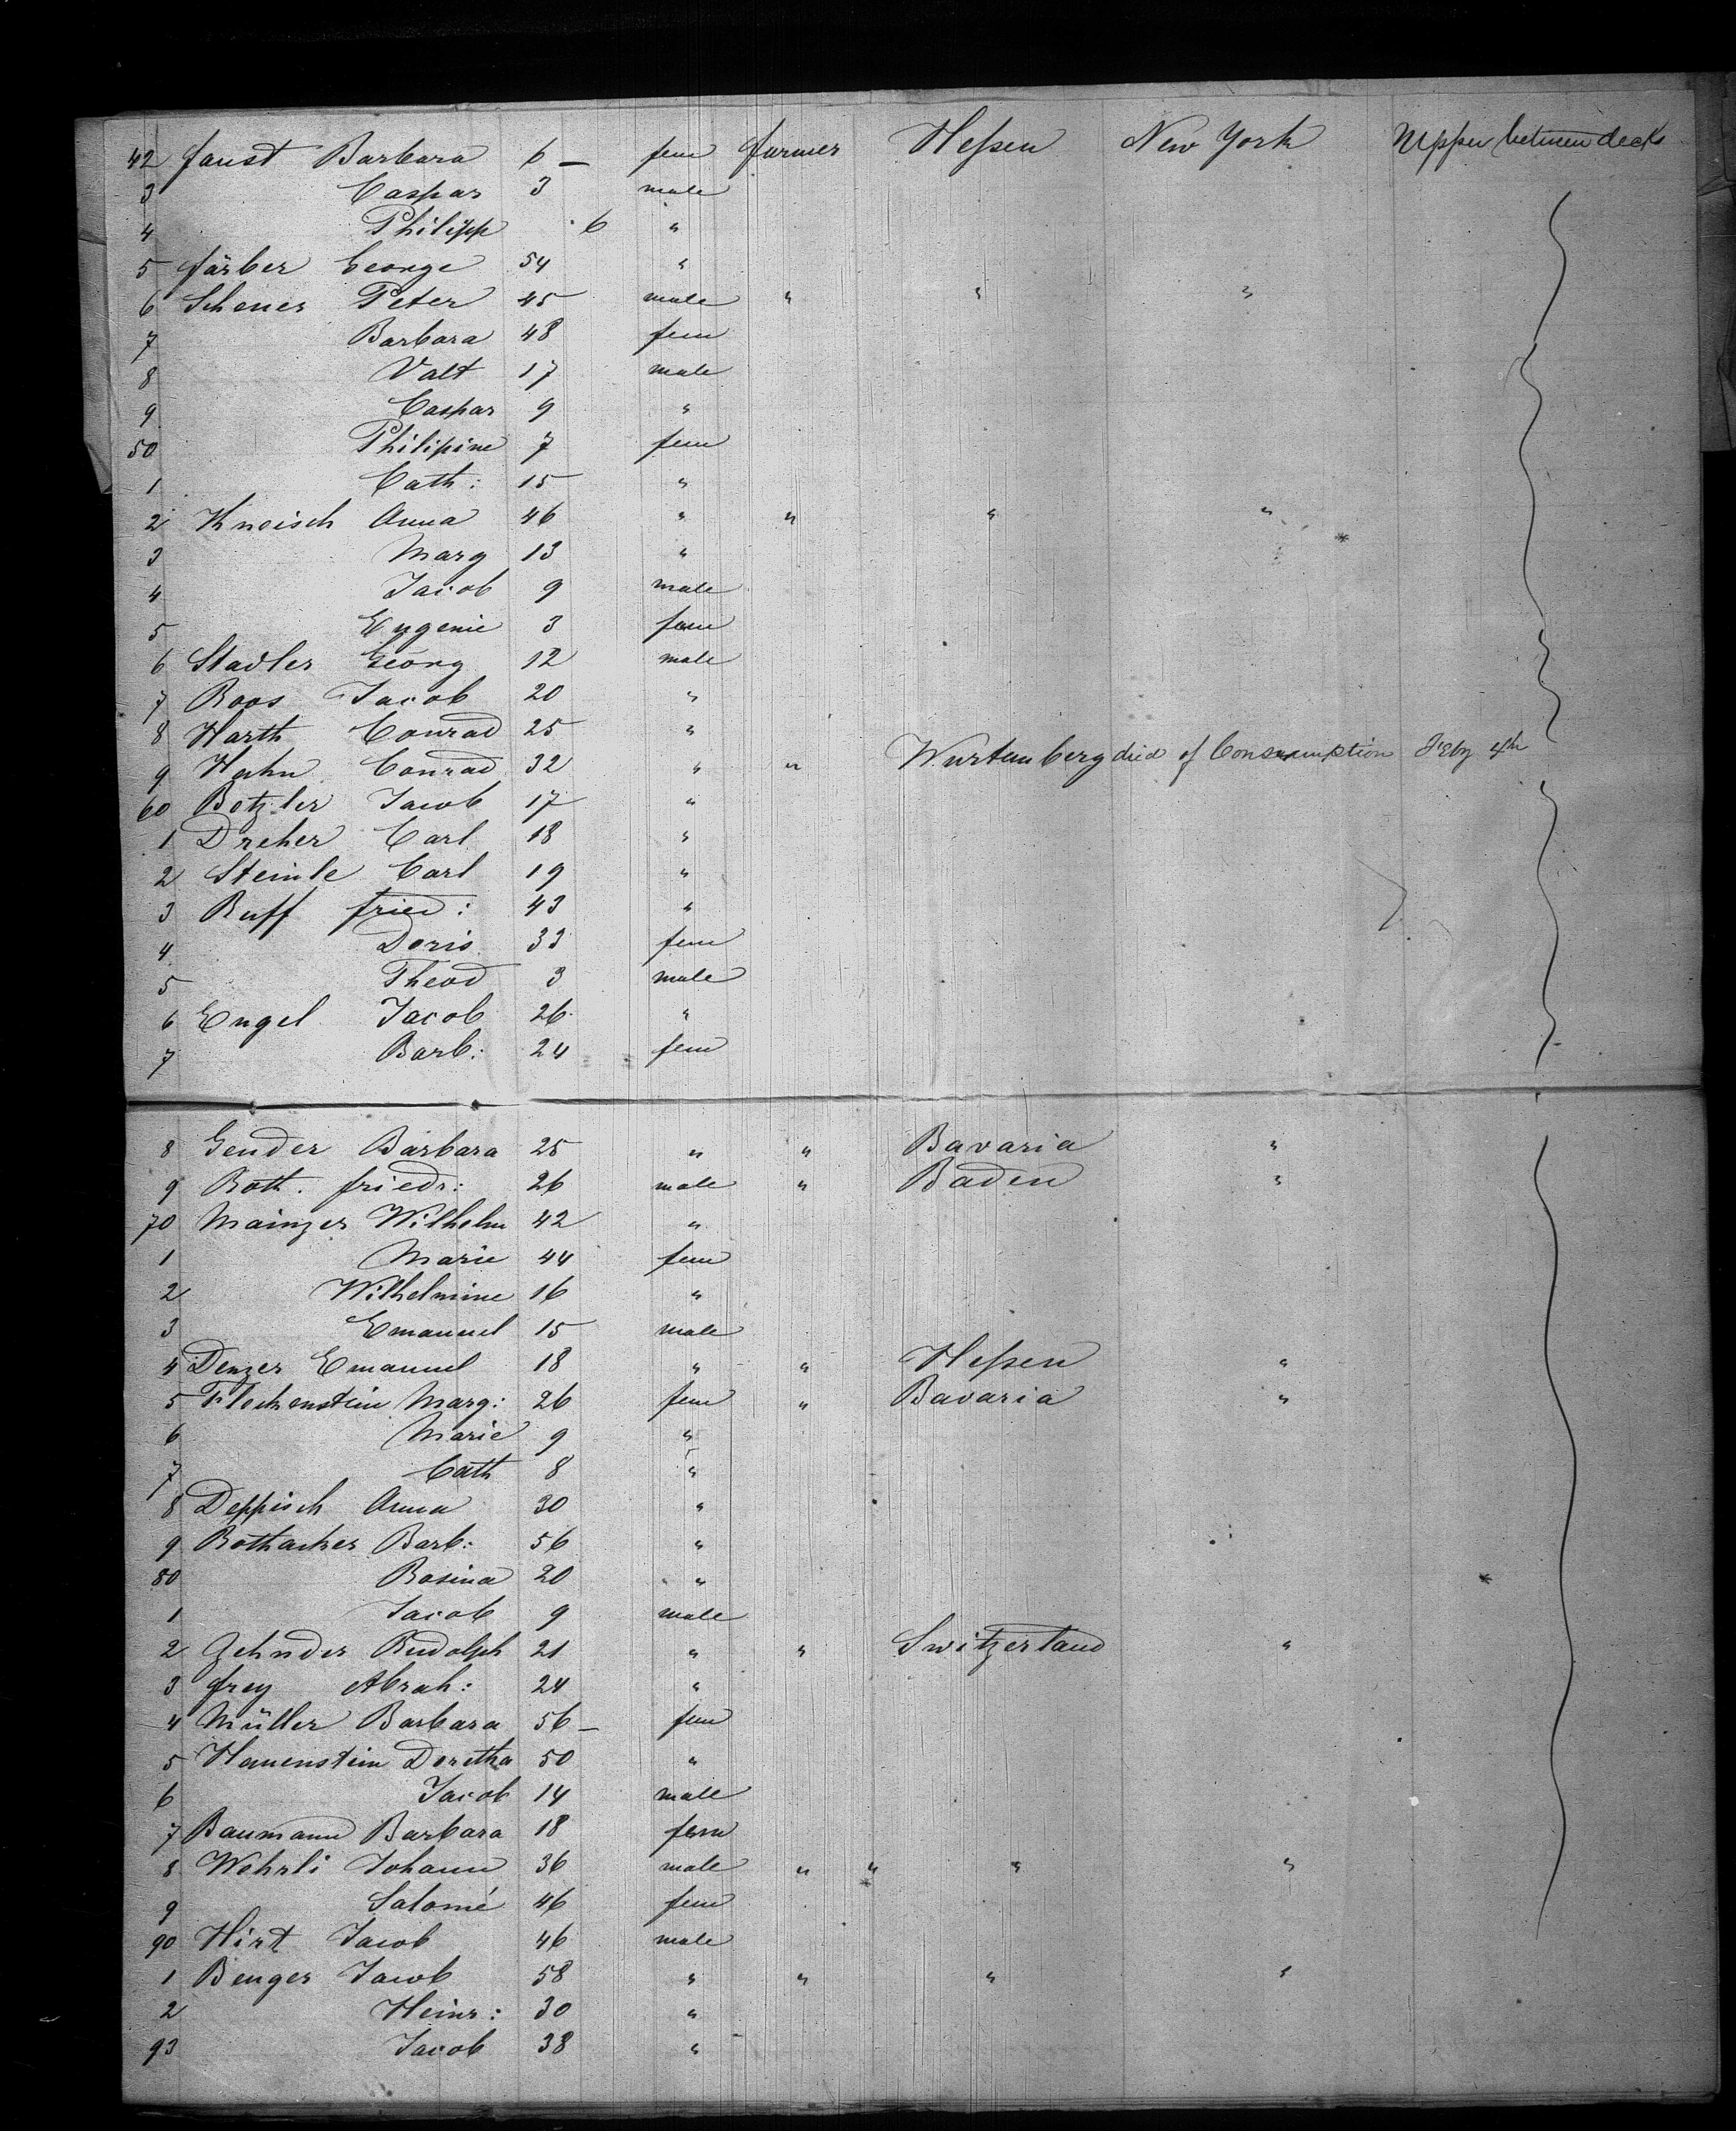 42 Faust Barbara 6 — fem farmer Heſsen New York Upper between decks
3 Caspar 3 male
4 Philipp 6 "
5 Färber George 54 "
6 Scheuer Peter 45 male " " "
7 Barbara 48 fem
8 Valt 17 male
9 Caspar 9 "
50 Philipine 7 fem
1 Cath: 15 "
2 Kneisch Anna 46 " " " "
3 Marg 13 "
4 Jacob 9 male
5 Eugenie 3 fem
6 Stadler Georg 12 male
7 Roos Jacob 20 "
8 Harth Conrad 25 "
9 Hahn Conrad 32 " " Wurtemberg died of Consumption Feby 4th
60 Betzler Jacob 17 "
1 Dreher Carl 18 "
2 Steinle Carl 19 "
3 Ruff Fried: 43 "
4 Doris 33 fem
5 Theod 3 male
6 Engel Jacob 26 "
7 Barb: 24 fem
8 Gender Barbara 25 " " Bavaria "
9 Roth. Friedr: 26 male " Baden "
70 Mainzer Wilhelm 42 "
1 Marie 44 fem
2 Wilhelmine 16 "
3 Emanuel 15 male
4 Denzer Emanuel 18 " " Heſsen "
5 Fleckenstein Marg: 26 fem " Bavaria "
6 Marie 9 "
7 Cath 8 "
8 Deppisch Anna 30 "
9 Rothacker Barb: 56 "
80 Rosina 20 "
1 Jacob 9 male
2 Zehnder Rudolph 21 " " Switzerland "
3 Frey Abrah: 24 "
4 Müller Barbara 56 — fem
5 Hauenstein Doretha 50 "
6 Jacob 14 male
7 Baumann Barbara 18 fem
8 Wehrli Johann 36 male " " " "
9 Salomé 46 fem
90 Hirt Jacob 46 male
1 Benger Jacob 58 " " " "
2 Heinr: 30 "
93 Jacob 38 "